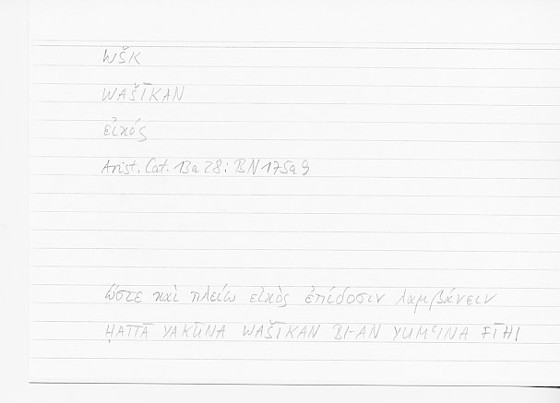 WŠK
WAŠĪKAN
εἰκός
Arist. Cat. 13a28: BN 175a9
ὥστε καὶ πλείω εἰκὸς ἐπίδοσιν λαμβάνειν
ḤATTĀ YAKŪNA WAŠĪKAN BI-AN YUMʿINA FĪHI